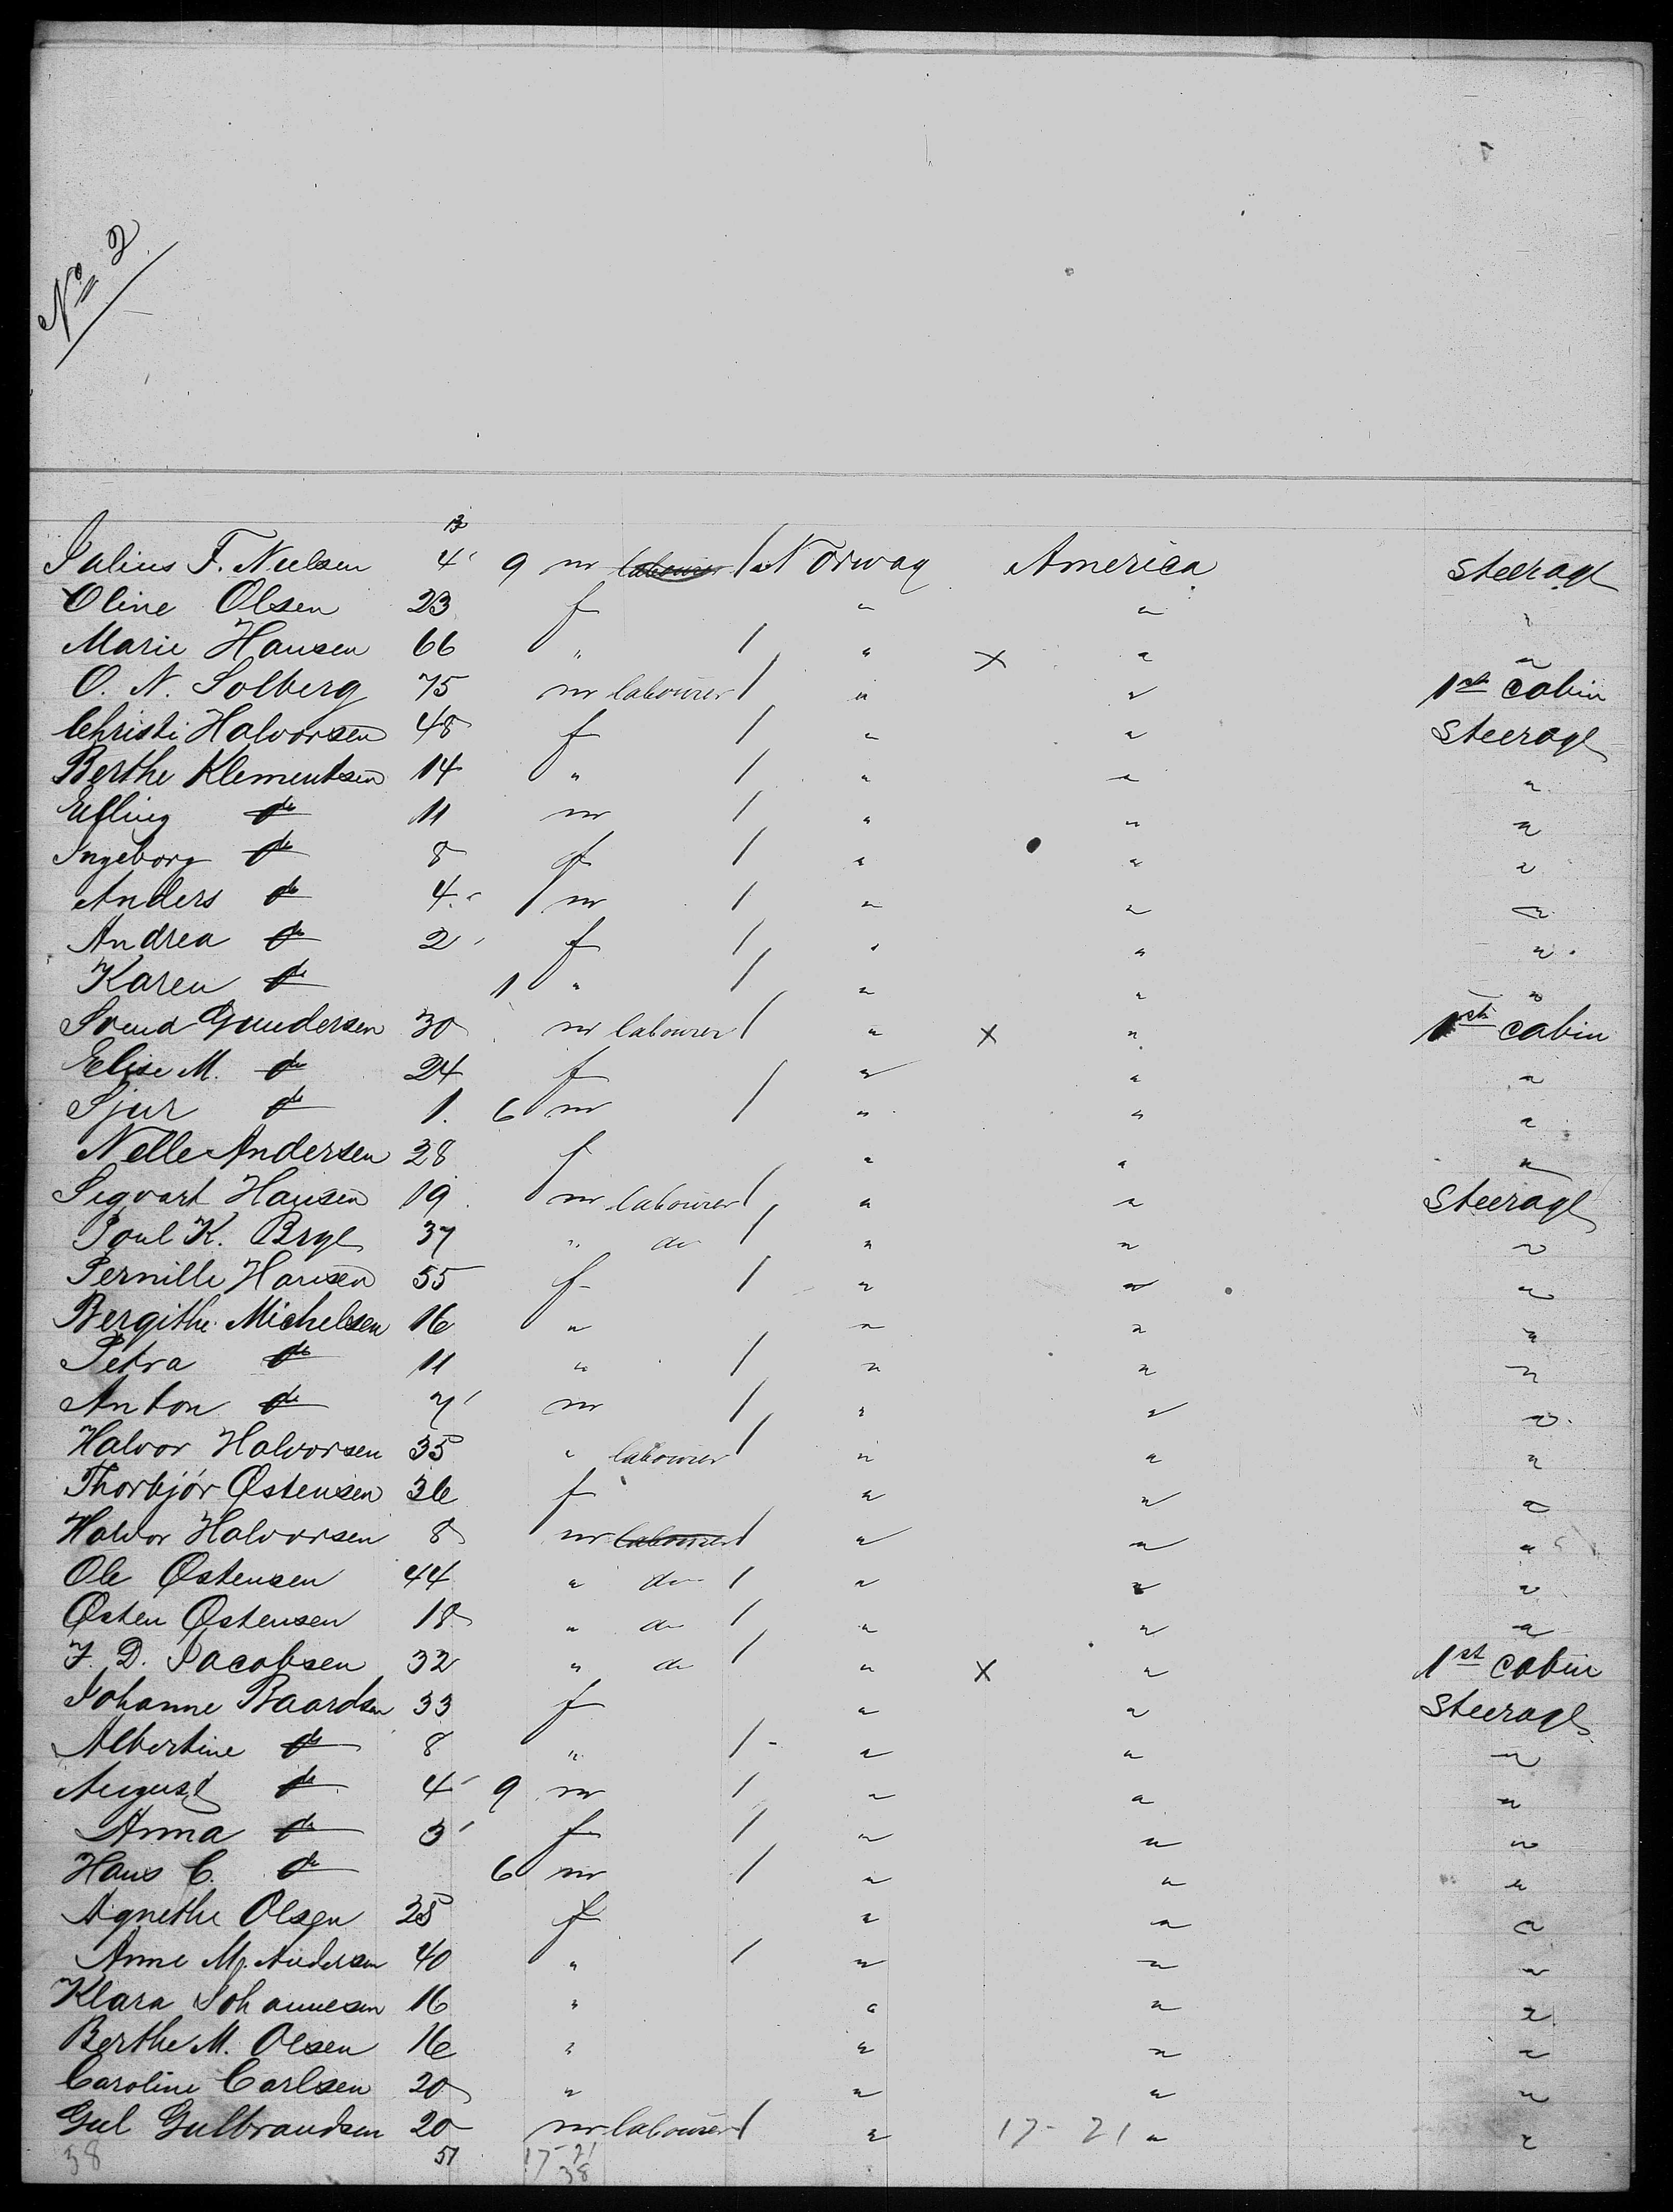 No 2
13
Julius F. Nielsen 4 9 m labourer / Norway America Steerage
Oline Olsen 23 f " " "
Marie Hansen 66 " / " X " "
O. N. Solberg 75 m labourer / " " 1st cabin
Christi Halvorsen 48 f / " " Steerage
Berthe Klementsen 14 " / " " "
Elling do 11 m / " " "
Ingeborg do 8 f / " " "
Anders do 4 m / " " "
Andrea do 2 f / " " "
Karen do 1 " / " " "
Svend Gundersen 30 m labourer / " X " 1st cabin
Elise M. do 24 f / " " "
Sjur do 1. 6 m / " " "
Nelle Andersen 28 f " " "
Sigvart Hansen 19 m labourer / " " Steerage
Poul K. 37 " do / " " "
Pernille Hansen 55 f / " " "
Bergithe Michelsen 16 " " " "
Petra do 11 " / " " "
Anton do 7 m / " " "
Halvor Halvorsen 35 " labourer / " " "
Thorbjør Østensen 36 f " " "
Halvor Halvorsen 8 m labourer / " " "
Ole Østensen 44 " do / " " "
Østen Østensen 18 " do / " " "
J. D. Jacobsen 32 " do / " X " 1st cabin
Johanne Baardsen 33 f " " Steerage
Albertine do 8 " / " " "
August do 4 9 m / " " "
Anna do 3 f / " " "
Hans C. do 6 m / " " "
Agnethe Olsen 38 f " " "
Anne M. Andersen 40 " / " " "
Klara Johannesen 16 " " " "
Berthe M. Olsen 16 " " " "
Caroline Carlsen 20 " " " "
Gul Gulbrandsen 20 m labourer / " 17-21 " "
38 51 17-21
38